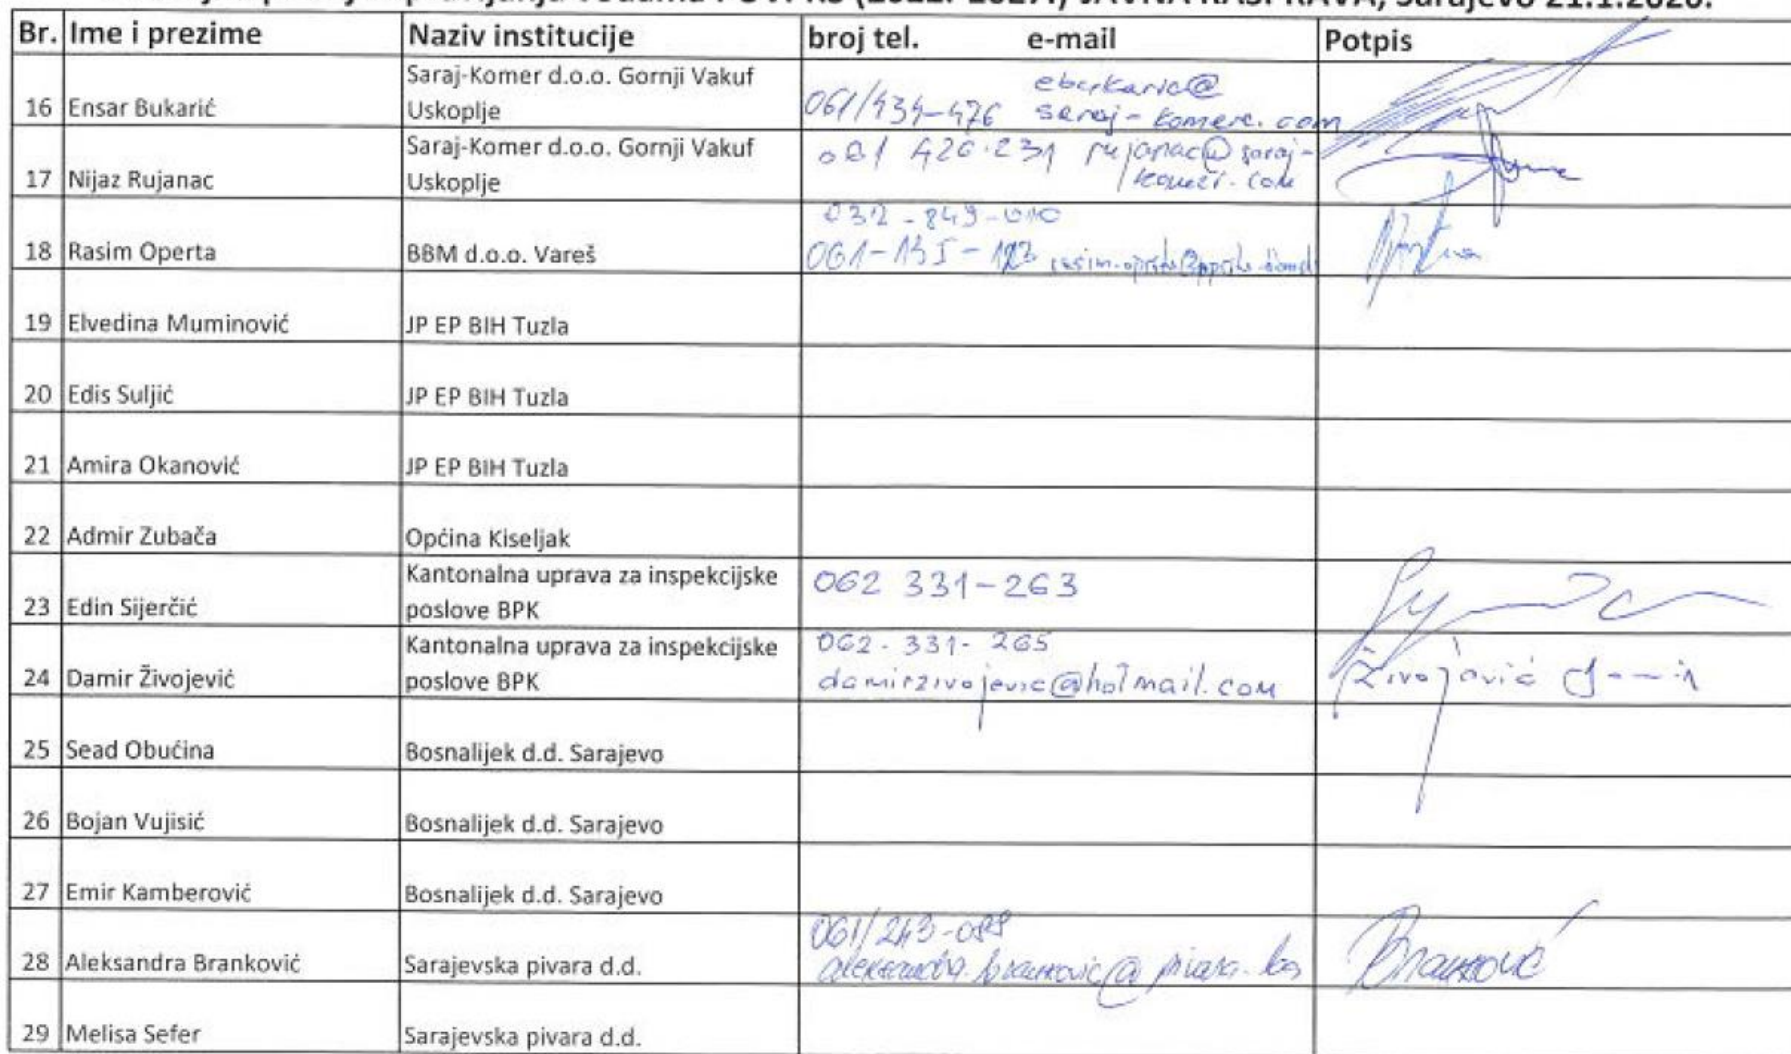 JAVNA RASPRAVA, Sarajevo 21.1.2020.
Br. Ime i prezime Naziv institucije broj tel. e-mail Potpis
16 Ensar Bukarić Saraj-Komer d.o.o. Gornji Vakuf Uskoplje 061/434-476 ebukaric@
saraj-komerc.com
17 Nijaz Rujanac Saraj-Komer d.o.o. Gornji Vakuf Uskoplje 061 426-231 rujanac@saraj-
komer.com
18 Rasim Operta BBM d.o.o. Vareš
061-135-123
19 Elvedina Muminović JP EP BIH Tuzla
20 Edis Suljić JP EP BIH Tuzla
21 Amira Okanović JP EP BIH Tuzla
22 Admir Zubača Općina Kiseljak
23 Edin Sijerčić Kantonalna uprava za inspekcijske poslove BPK 062 331-263
24 Damir Živojević Kantonalna uprava za inspekcijske poslove BPK 062-331-265
damirzivojevic@hotmail.com Živojević Damir
25 Sead Obućina Bosnalijek d.d. Sarajevo
26 Bojan Vujisić Bosnalijek d.d. Sarajevo
27 Emir Kamberović Bosnalijek d.d. Sarajevo
28 Aleksandra Branković Sarajevska pivara d.d. 061/243-088
aleksandra.brankovic@pivara.ba Branković
29 Melisa Sefer Sarajevska pivara d.d.